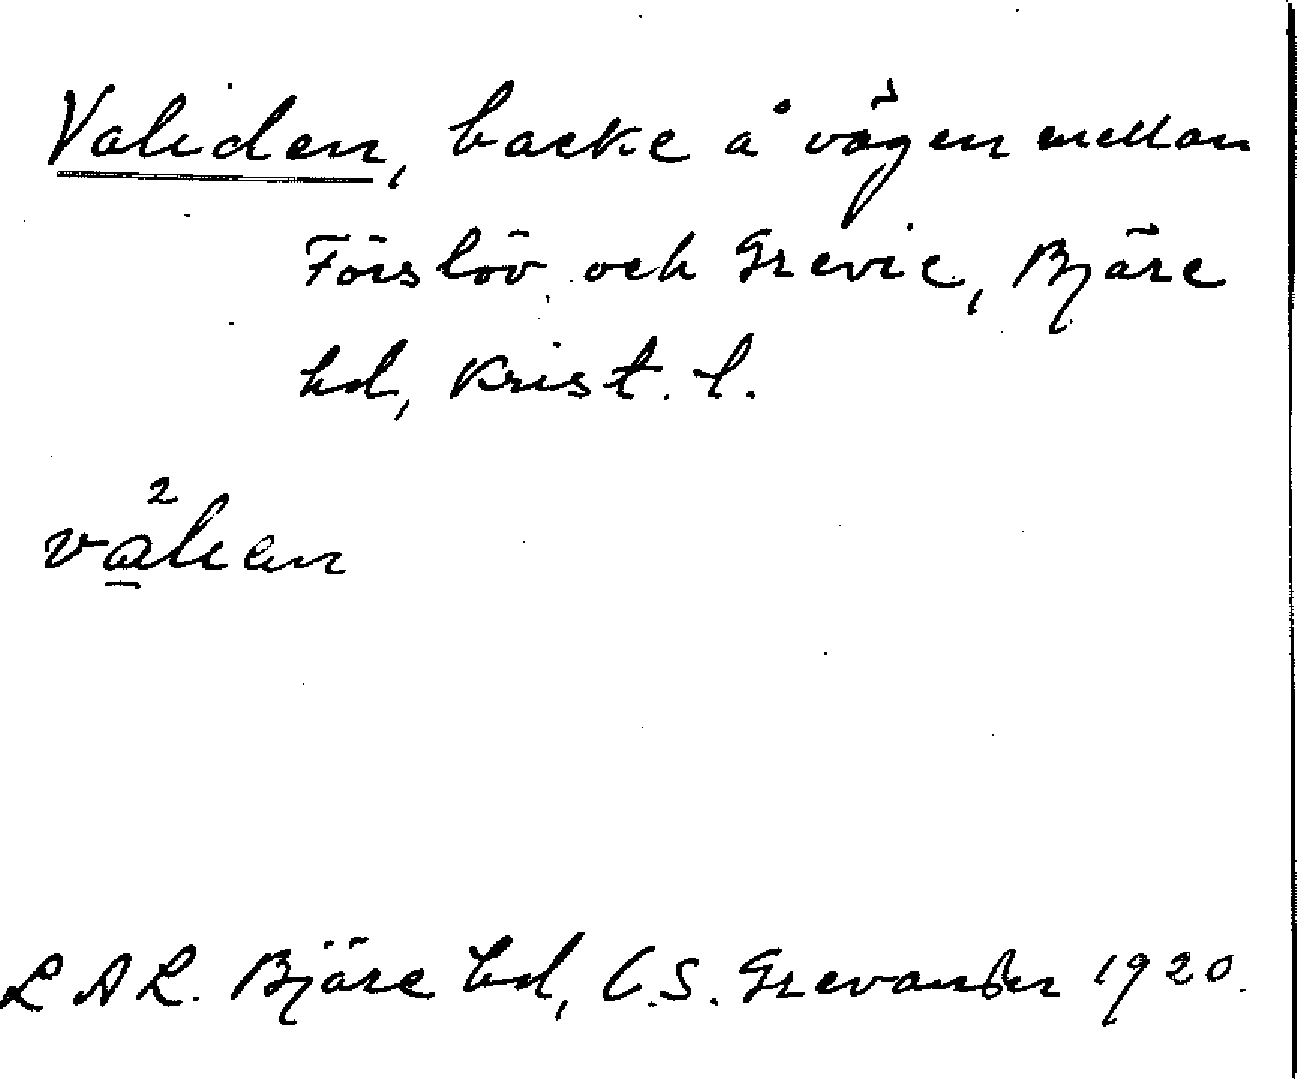 Validen, backe å vägen mellan
Förslöv och Grevie, Bjäre
hd, Krist. l.
2
välien
L A L. Bjäre hd, C. S. Grevander 1920.